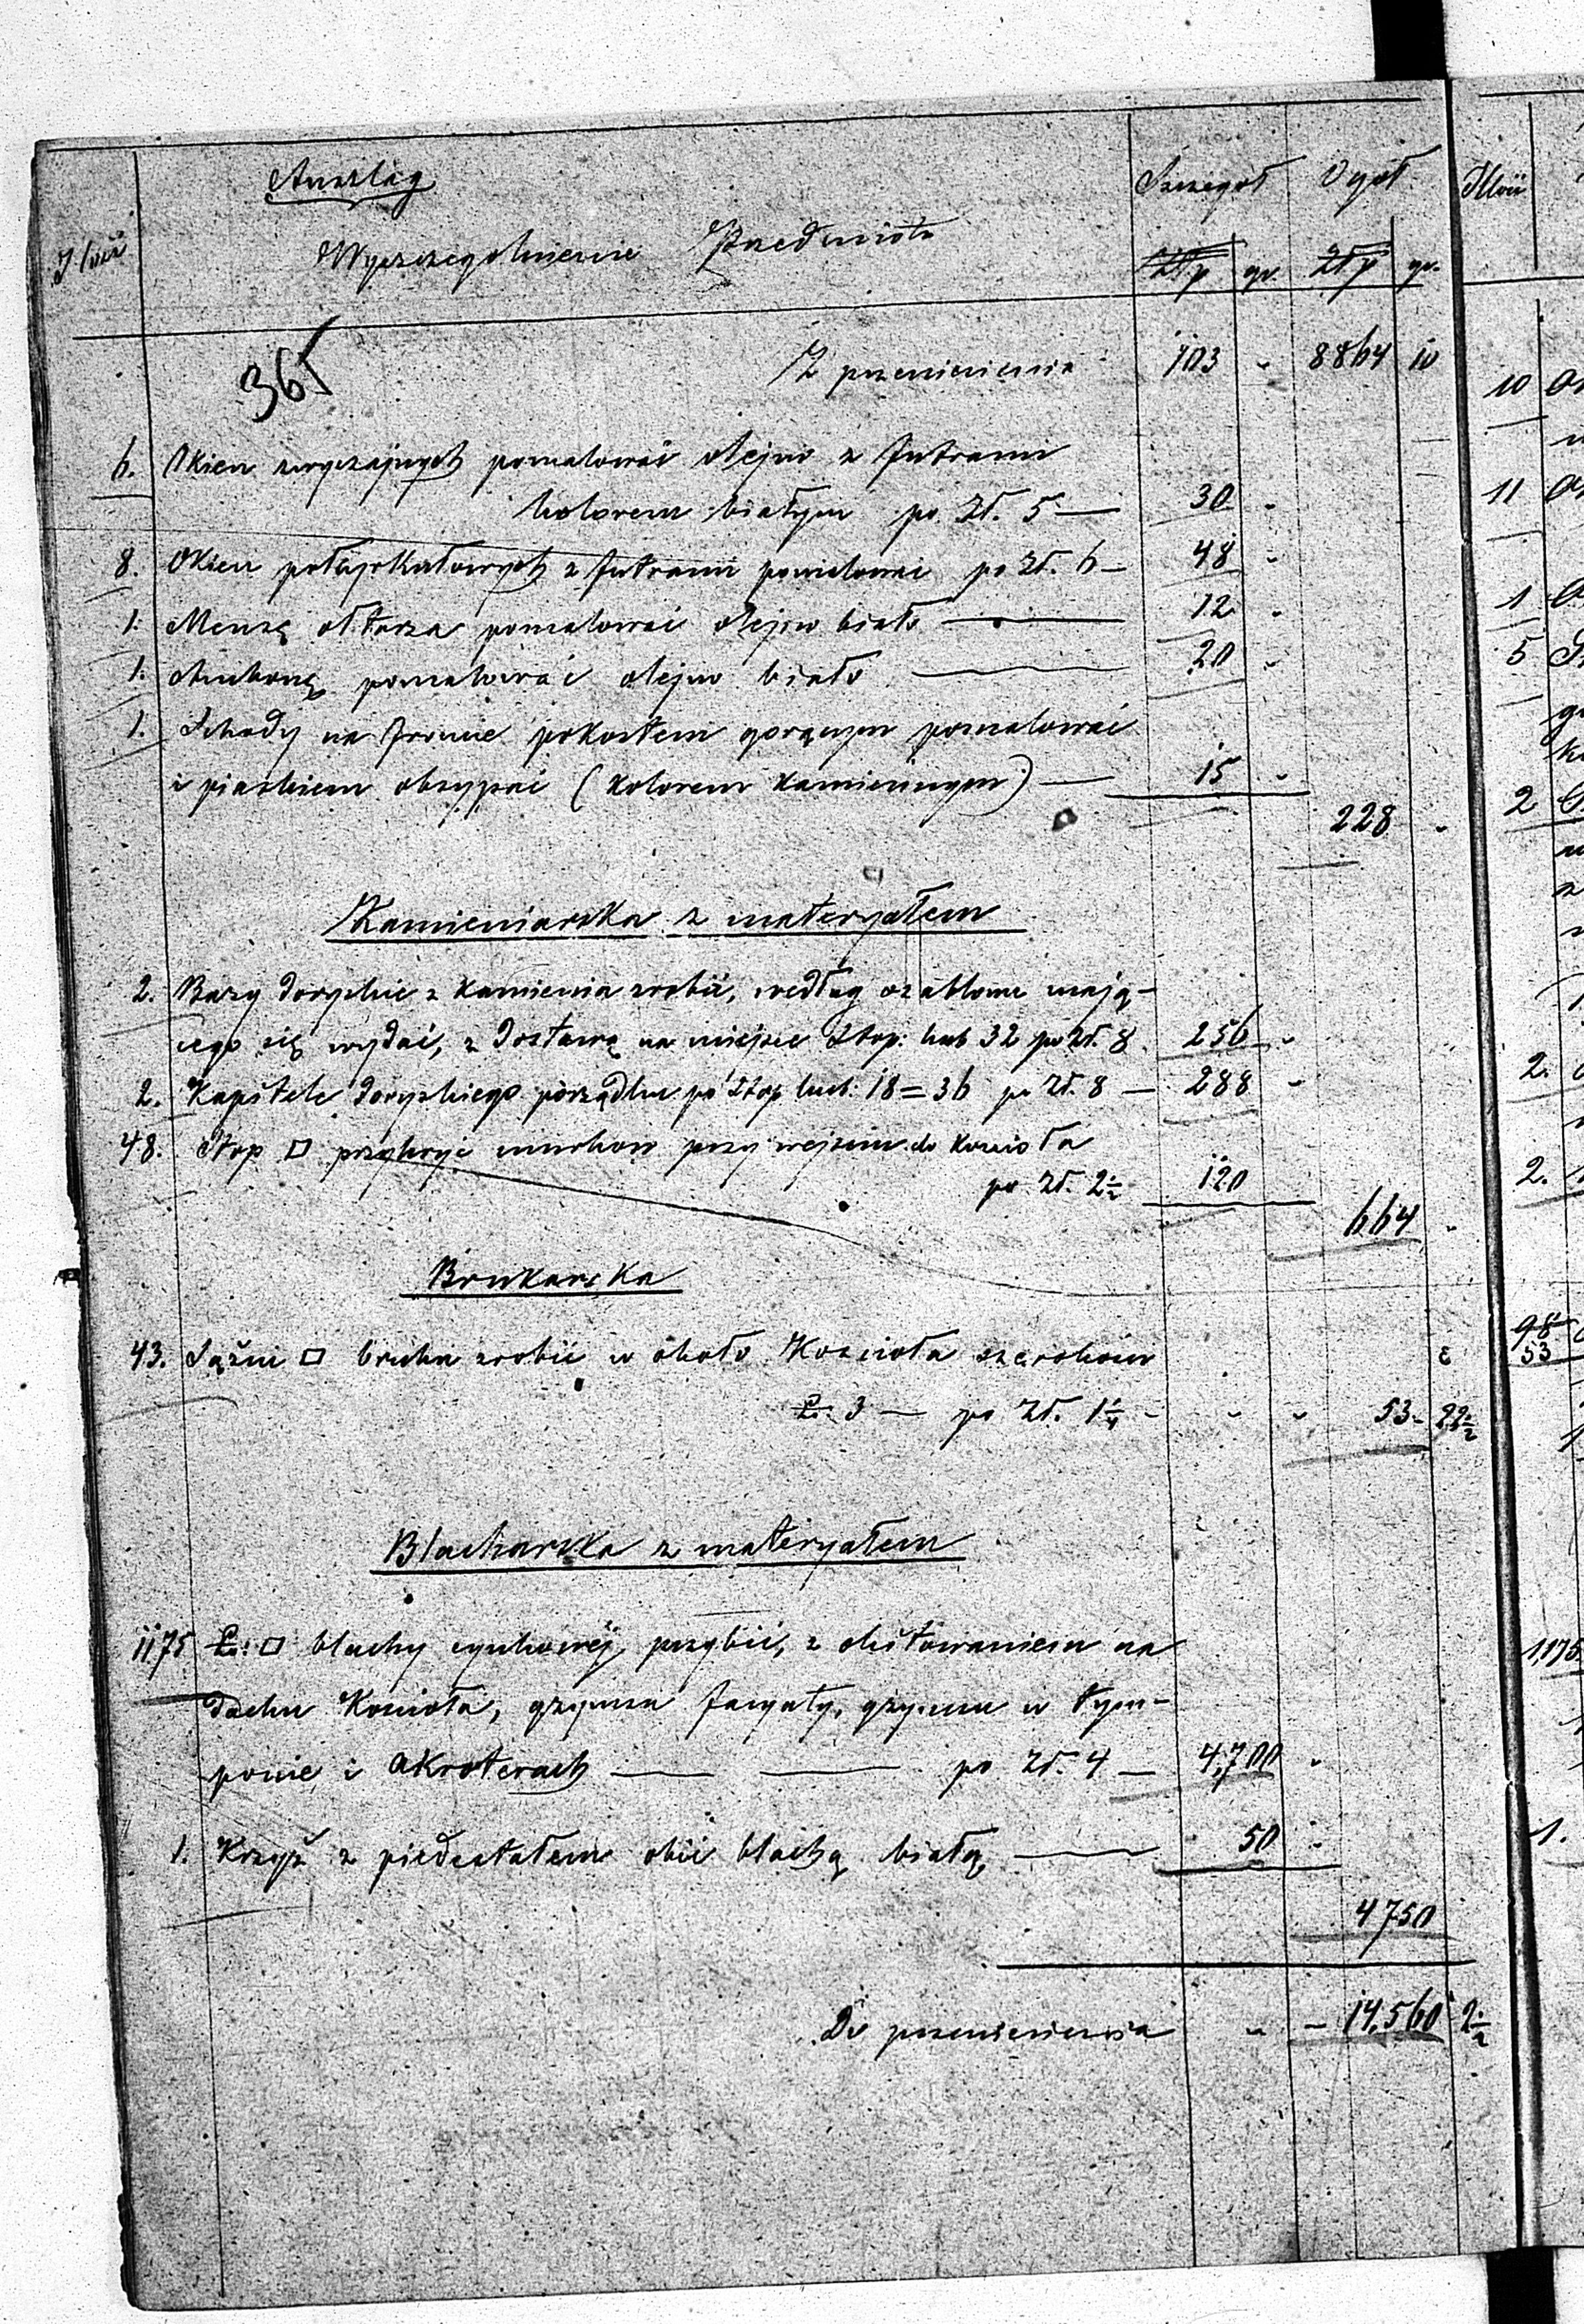 Anszlag
Szczegół Ogół Ilość
Ilość Wyszczególnienie Przedmiotu
Złp gr. Złp gr.
365
Z przeniesienia 103 " 8864 10
6. Okien zwyczajnych pomalować olejno z futrami
kolorem białym po Zł. 5 — 30 "
8. Okien półcyrkułowych z futrami pomalować po Zł. 6 — 48 "
1. Menzę ołtarza pomalować olejno biało — 12 "
1. Ambonę pomalować olejno biało — 20 "
1. Schody na froncie pokostem gorącym pomalować
i piaskiem obsypać (kolorem kamiennym) — 15 "
228 "
Kamieniarska z materyałem
2. Bazy doryckie z kamienia zrobić, według szablonu mają-
cego się wydać, z dostawą na miejsce Stop: kub 32 po Zł. 8 256 "
2. Kapitele doryckiego porządku po Stop kub: 18 = 36 po Zł. 8 — 288 "
48. Stop □ przykryć murków przy wejściu do kościoła
po Zł. 2½ 120
664 "
Brukarska
43. Sążni □ bruku zrobić w około Kościoła szerokości
Ł. 3 — po Zł. 1¼ - " " 53 - 22½
Blacharska z materyałem
1175 Ł: □ blachy cynkowéj przybić, z olutowaniem na
dachu Kościoła, gzymsu facyaty, gzymsu w tym-
panie i akroterach — — po Zł. 4 — 4,700 "
1. Krzyż z piedestałem obić blachą białą — 50 "
4750
Do przeniesienia " - 14,560 2½
10
11
1
5
2
2.
2.
98
53
1,175
1.